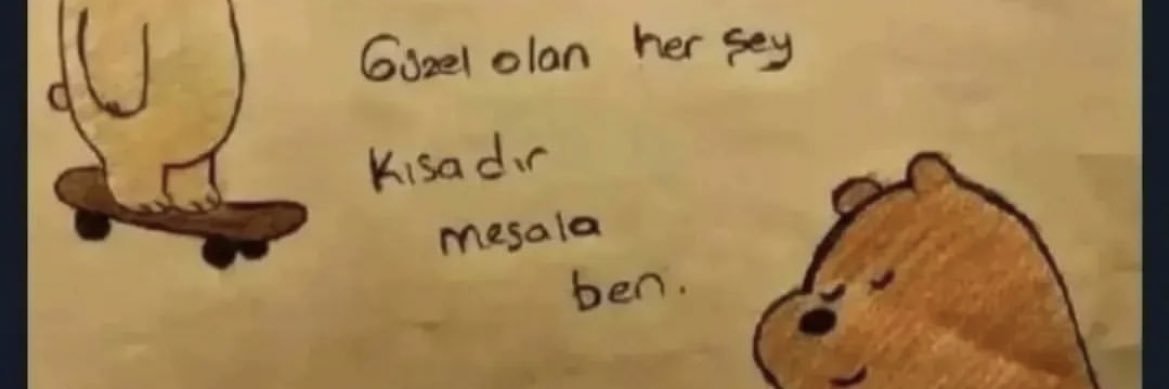 Güzel olan her şey
Kısadır
mesala
ben.